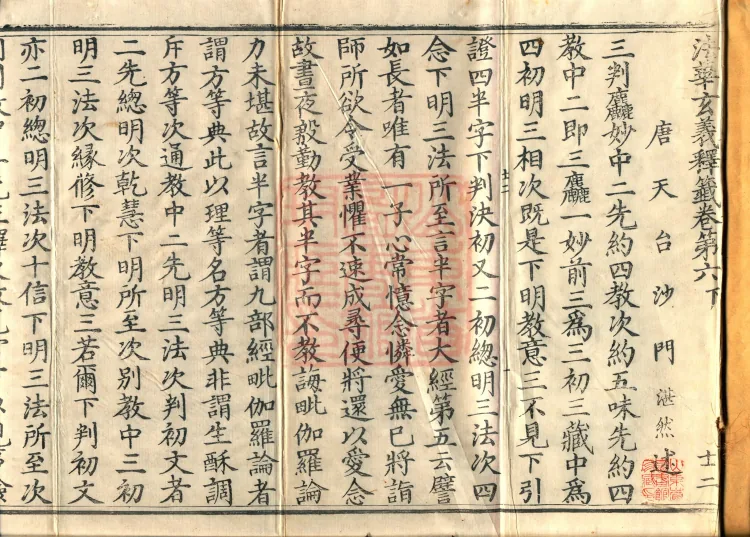 法華玄義釋籤卷第六下 十二
唐天台沙門湛然述
三判麤妙中二先約四教次約五味先約四
教中二即三麤一妙前三爲三初三藏中爲
四初明三相次既是下明教意三不見下引
十二
證四半字下判決初又二初總明三法次四
念下明三法所至言半字者大經第五云譬
如長者唯有一子心常憶念憐愛無已將詣
師所欲令受業懼不速成尋便將還以愛念
故晝夜殷勤教其半字而不教誨毗伽羅論
力未堪故言半字者謂九部經毗伽羅論者
謂方等典此以理等名方等典非謂生酥調
斥方等次通教中二先明三法次判初文者
二先總明次乾慧下明所至次別教中三初
明三法次緣修下明教意三若爾下判初文
亦二初總明三法次十信下明三法所至次